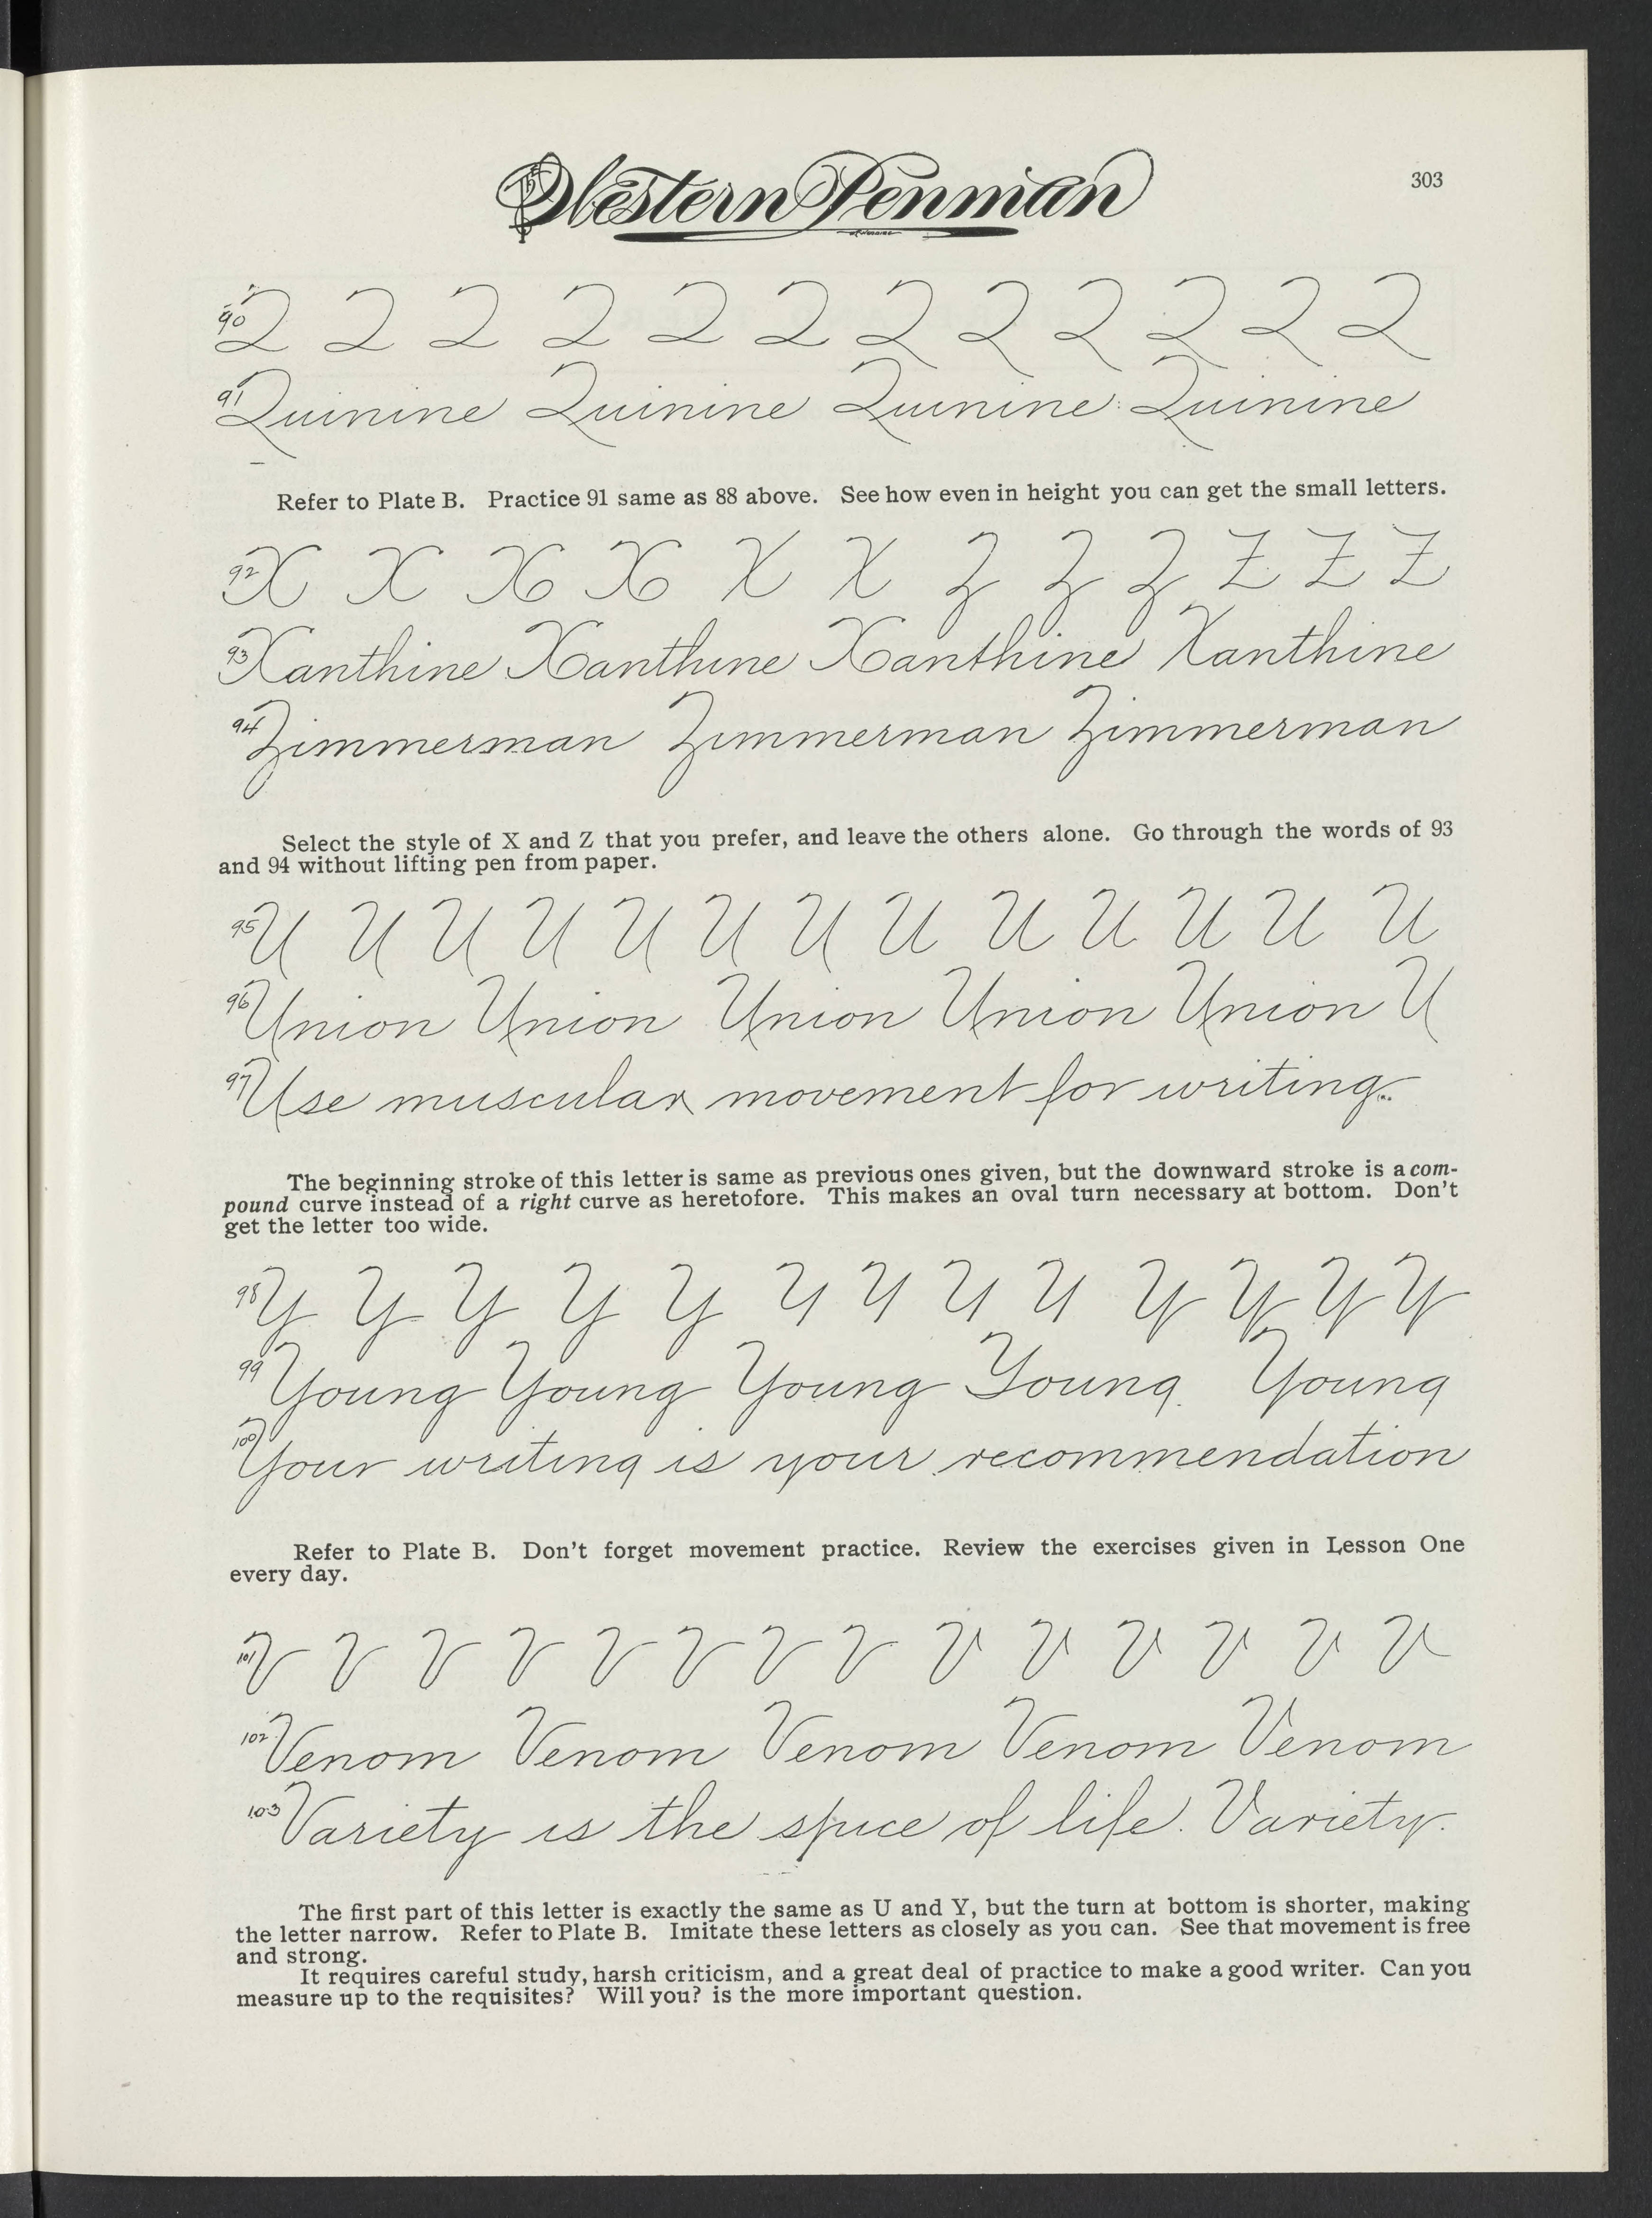 Western Penman
303
90 Q Q Q Q Q Q Q Q Q Q Q Q
91 Quinine Quinine Quinine Quinine
Refer to Plate B. Practice 91 same as 88 above. See how even in height you can get the small letters.
92 X X X X X X Z Z Z Z Z Z
93 Xanthine Xanthine Xanthine Xanthine
94 Zimmerman Zimmerman Zimmerman
Select the style of X and Z that you prefer, and leave the others alone. Go through the words of 93
and 94 without lifting pen from paper.
95 U U U U U U U U U U U U U
96 Union Union Union Union Union U
97 Use muscular movement for writing.
The beginning stroke of this letter is same as previous ones given, but the downward stroke is a com-
pound curve instead of a right curve as heretofore. This makes an oval turn necessary at bottom. Don't
get the letter too wide.
98 Y Y Y Y Y Y Y Y Y Y Y Y Y
99 Young Young Young Young Young
100 Your writing is your recommendation
Refer to Plate B. Don't forget movement practice. Review the exercises given in Lesson One
every day.
101 V V V V V V V V V V V V V V
102 Venom Venom Venom Venom Venom
103 Variety is the spice of life. Variety.
The first part of this letter is exactly the same as U and Y, but the turn at bottom is shorter, making
the letter narrow. Refer to Plate B. Imitate these letters as closely as you can. See that movement is free
and strong.
It requires careful study, harsh criticism, and a great deal of practice to make a good writer. Can you
measure up to the requisites? Will you? is the more important question.